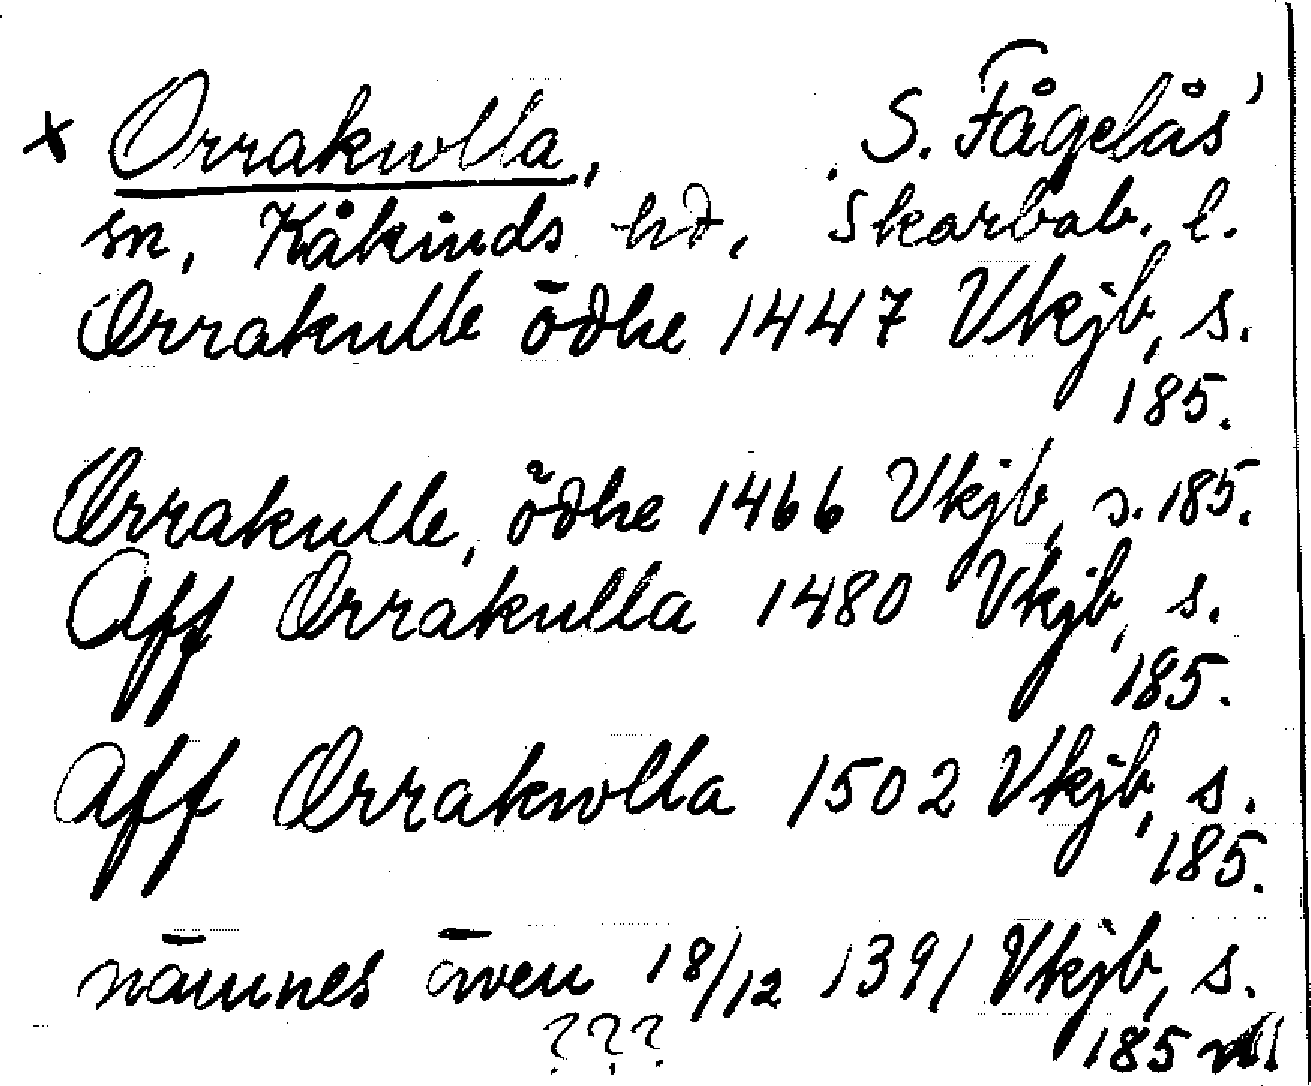 x Orrakwlla, S. Fågelås'
sn, Kåkinds hd, Skarbab. l.
Orrakulle ödhe 1447 Vkjb, s.
185.
Orrakulle, ödhe 1466 Vkjb, s. 185.
Aff Orrakulla 1480 Vkjb, s.
185.
Aff Orrakwlla 1502 Vkjb, s.
185.
nämnes även 18/12 1391 Vkjb, s.
??? 185